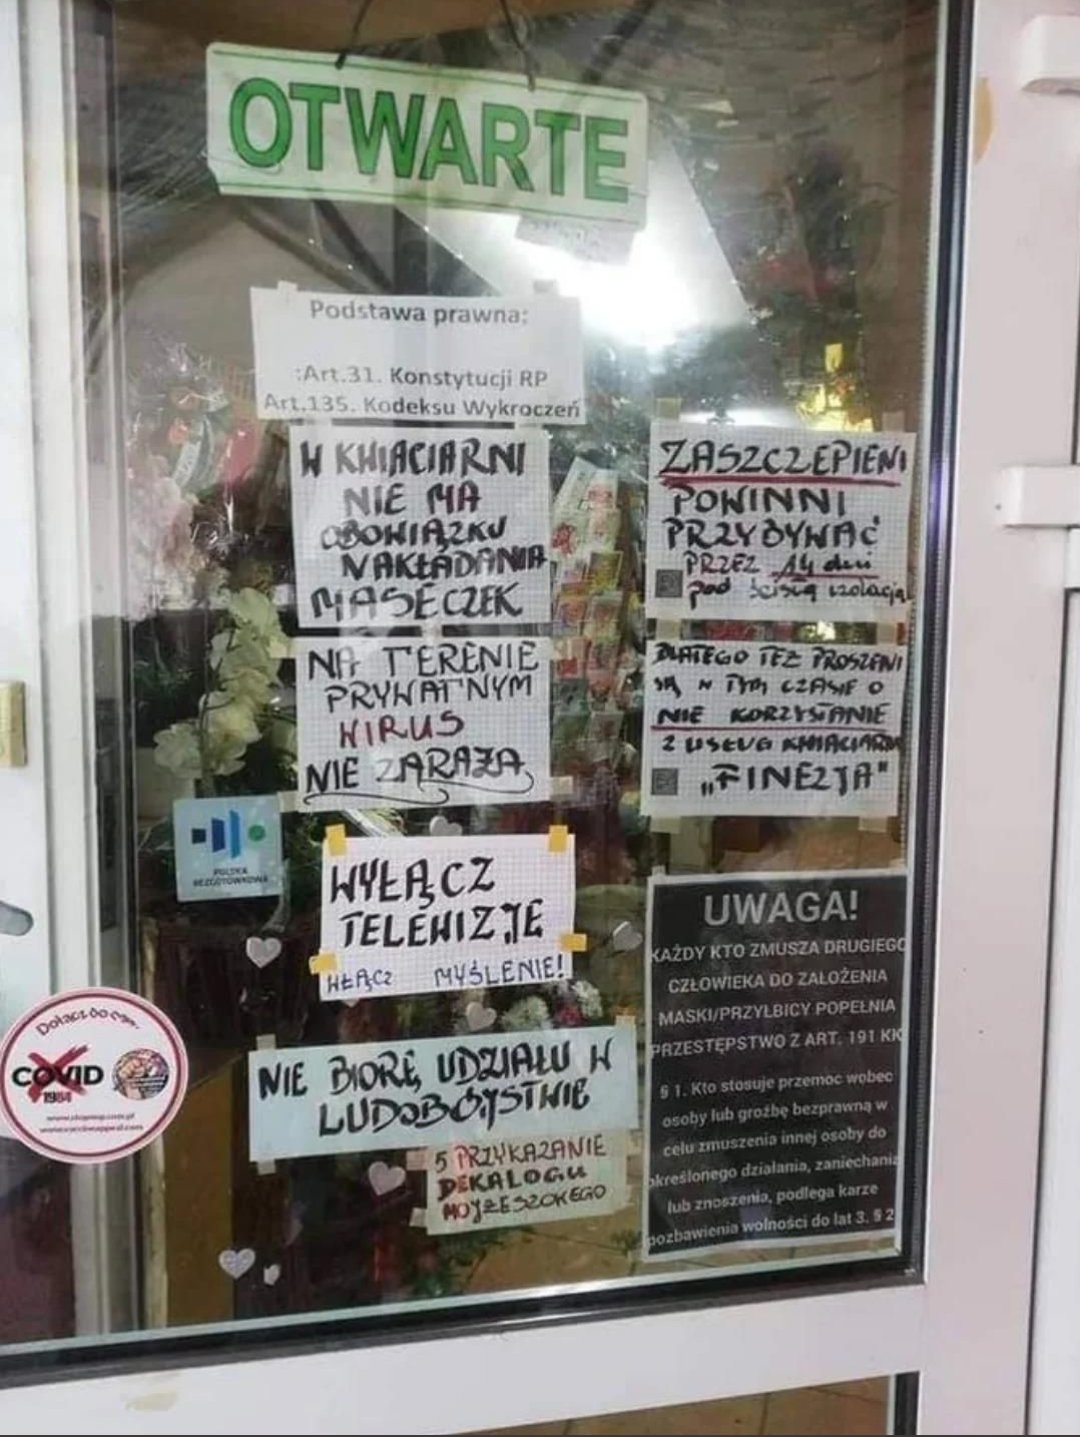 OTWARTE
Podstawa prawna:
:Art.31. Konstytucji RP
Art.135. Kodeksu Wykroczeń
W KWIACIARNI
NIE MA
OBOWIĄZKU
NAKŁADANIA
MASECZEK
NA TERENIE
PRYWATNYM
WIRUS
NIE ZARAŻA
WYŁĄCZ
TELEWIZJĘ
WŁĄCZ MYŚLENIE!
NIE BIORĘ UDZIAŁU W
LUDOBÓJSTWIE
5 PRZYKAZANIE
DEKALOGU
MOJŻESZOWEGO
ZASZCZEPIENI
POWINNI
PRZYBYWAĆ
PRZEZ 14 dni
pod ścisłą izolacją
DLATEGO TEŻ PROSZENI
SĄ W TYM CZASIE O
NIE KORZYSTANIE
Z USŁUG KWIACIARNI
"FINEZJA"
UWAGA!
KAŻDY KTO ZMUSZA DRUGIEGO
CZŁOWIEKA DO ZAŁOŻENIA
MASKI/PRZYŁBICY POPEŁNIA
PRZESTĘPSTWO Z ART. 191 KK
§ 1. Kto stosuje przemoc wobec
osoby lub groźbę bezprawną w
celu zmuszenia innej osoby do
określonego działania, zaniechania
lub znoszenia, podlega karze
pozbawienia wolności do lat 3. § 2
POLSKA
BEZGOTÓWKOWA
Dołącz do
COVID
1984
www.stopnop.com.pl